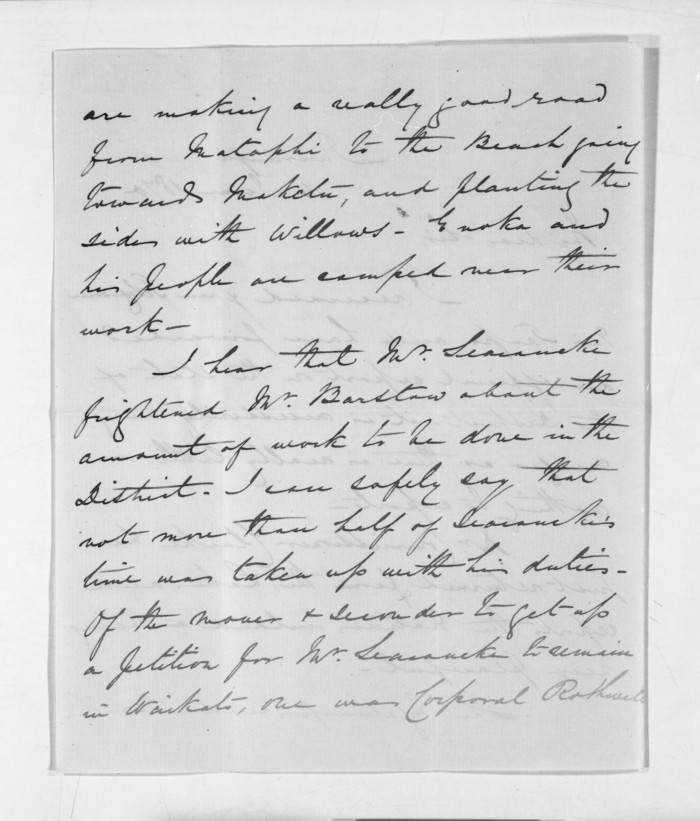 are making a really good road
from Mataphi to the Beach going
towards Maketu, and planting the
sides with Willows - Enoka and
his people are camped near their
work -
I hear that Mr. Searancke
frightened Mr. Barstow about the
amount of work to be done in the
District - I can safely say that
not more than half of Searanckes
time was taken up with his duties -
Of the mover & seconder to get up
a petition for Mr. Searancke to remain
in Waikato, one was Corporal Rothwell